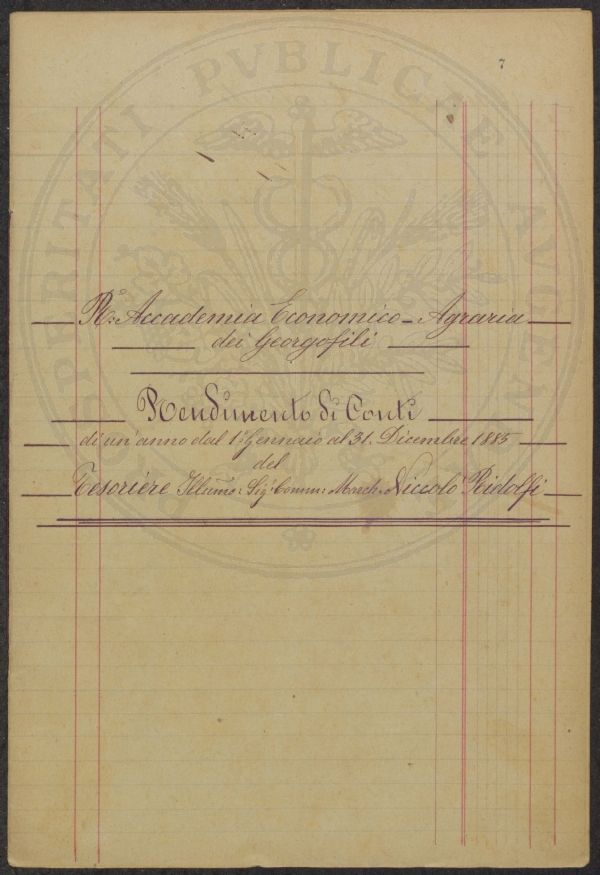 7
PROSPERITATI PVBLICAE AVGENDAE
R.ª Accademia Economico-Agraria
dei Georgofili
Rendimento di Conti
di un'anno dal 1º Gennaio al 31. Dicembre 1885
del
Tesoriere Illumo: Sigr Comm: March. Niccolò Ridolfi